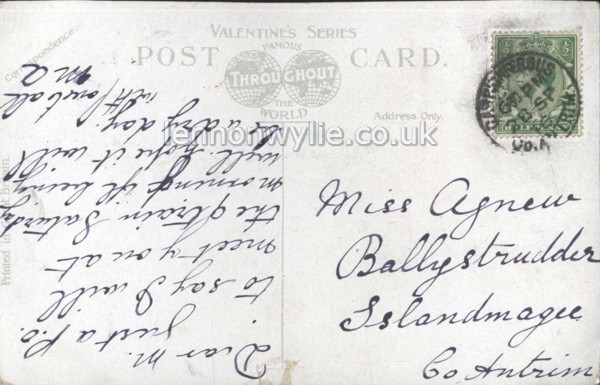 VALENTINE'S SERIES
FAMOUS
POST CARD.
THROUGHOUT
THE
WORLD
Correspondence.
Address Only.
Printed in
CARRICKFERGUS
PM
28 SP
Co. ANTRIM
lennonwylie.co.uk
Miss Agnew
Ballystrudder
Islandmagee
Co Antrim
Dear M.
Just a P.C.
to say I will
meet you at
the 9 train Saturday
morning if being
will hope it will
be a dry day.
with love